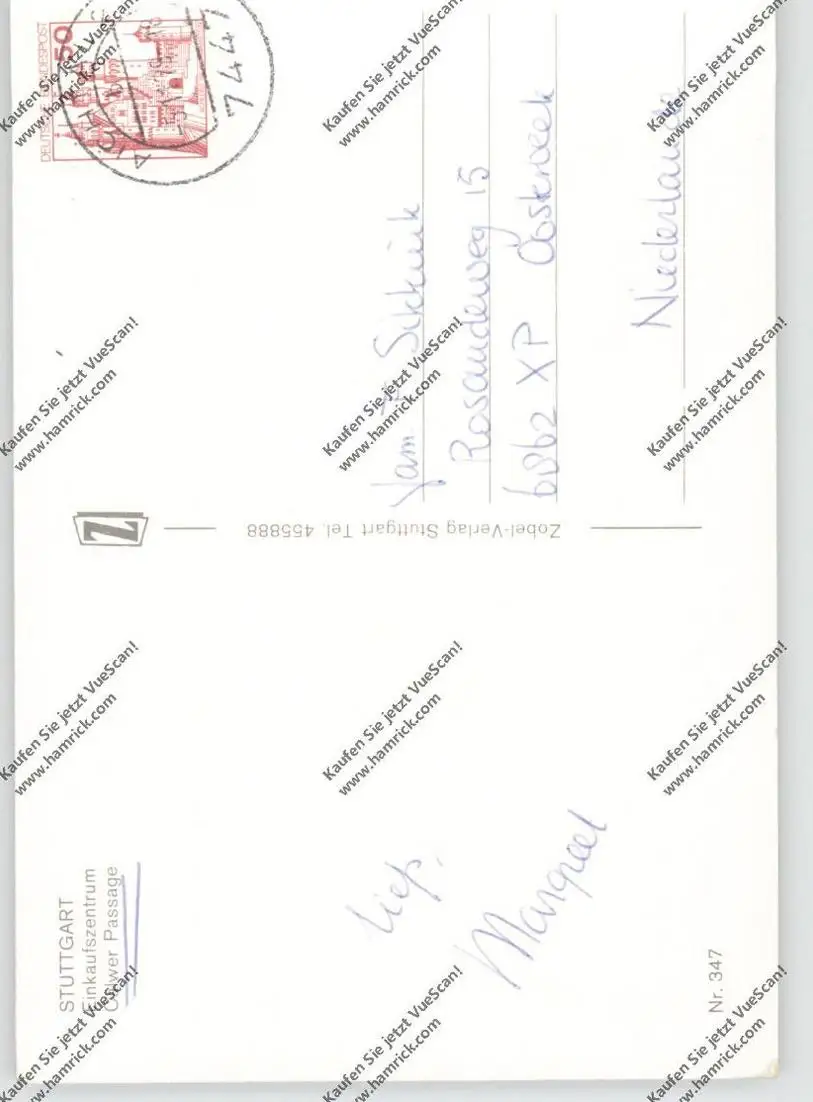 STUTTGART
Einkaufszentrum
Calwer Passage
Liefs,
Margreet
Nr. 347
Zobel-Verlag Stuttgart Tel. 455888
Z
DEUTSCHE BUNDESPOST
50
7447
Fam.
Rosandeweg 15
6862 XP Oosterbeek
Niederlande
Kaufen Sie jetzt VueScan!
www.hamrick.com
Kaufen Sie jetzt VueScan!
www.hamrick.com
Kaufen Sie jetzt VueScan!
www.hamrick.com
Kaufen Sie jetzt VueScan!
www.hamrick.com
Kaufen Sie jetzt VueScan!
www.hamrick.com
Kaufen Sie jetzt VueScan!
www.hamrick.com
Kaufen Sie jetzt VueScan!
www.hamrick.com
Kaufen Sie jetzt VueScan!
www.hamrick.com
Kaufen Sie jetzt VueScan!
www.hamrick.com
Kaufen Sie jetzt VueScan!
www.hamrick.com
Kaufen Sie jetzt VueScan!
www.hamrick.com
Kaufen Sie jetzt VueScan!
www.hamrick.com